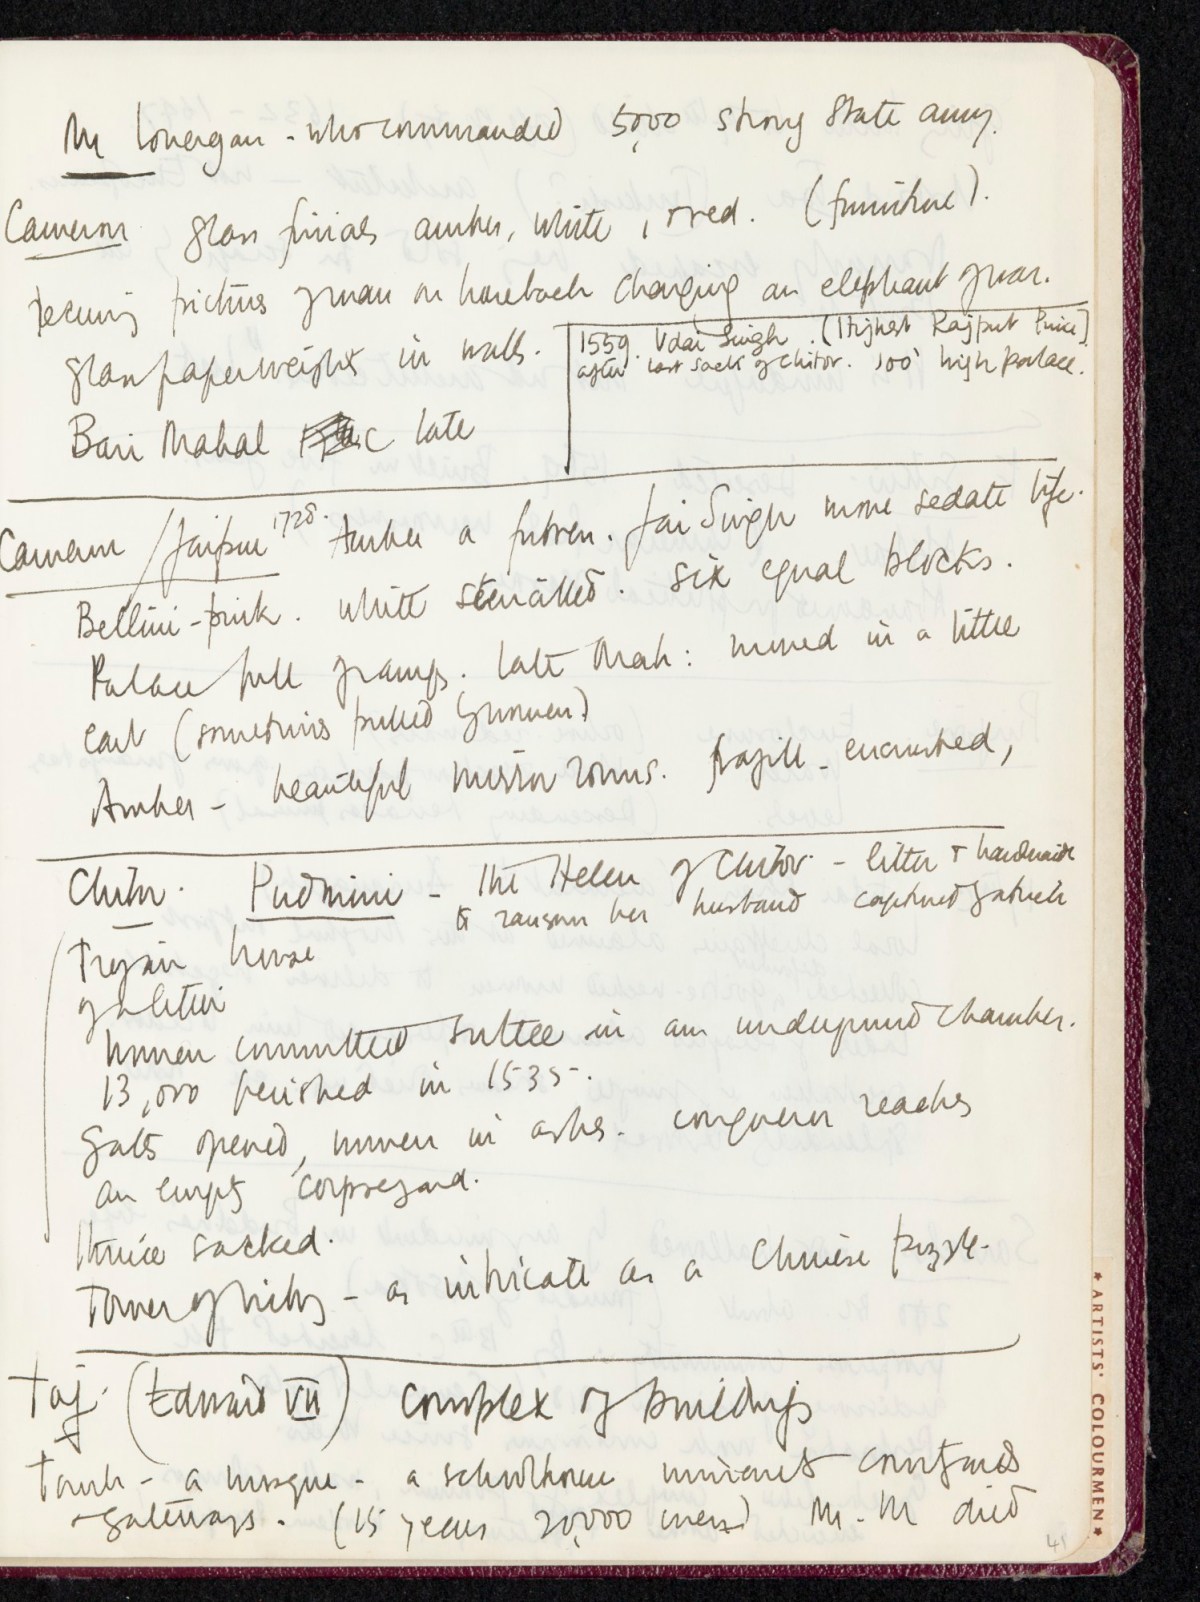 Mr Lonergan - who commanded 5,000 strong State army.
Cameron glass finials amber, white, & red. (furniture).
peeling pictures of man on horseback charging an elephant of war.
glass paperweights in walls.
1559. Udai Singh. (Highest Rajput Prince)
after last sack of Chitor. 100' high palace.
Bari Mahal C late
Cameron / Jaipur 1728. Amber a fortress. Jai Singh more sedate life.
Bellini-pink. white stencilled. six equal blocks.
Palace full of ramps. late Mah: moved in a little
cart (sometimes pulled by women)
Amber - beautiful mirror rooms. fragile - encrusted,
Chitor. Pudmini - the Helen of Chitor - litter & handmaids
to ransom her husband captured
Trojan horse
of litters
women committed suttee in an underground chamber.
13,000 perished in 1535.
Gates opened, women in ashes. conqueror reaches
an empty corpseyard.
thrice sacked.
Tower of Victory - as intricate as a Chinese puzzle.
Taj. (Edward VII) complex of buildings
Tomb - a mosque - a schoolhouse minarets courtyards
gateways. (15 years 20,000 men) M. M died
41
*ARTISTS' COLOURMEN*